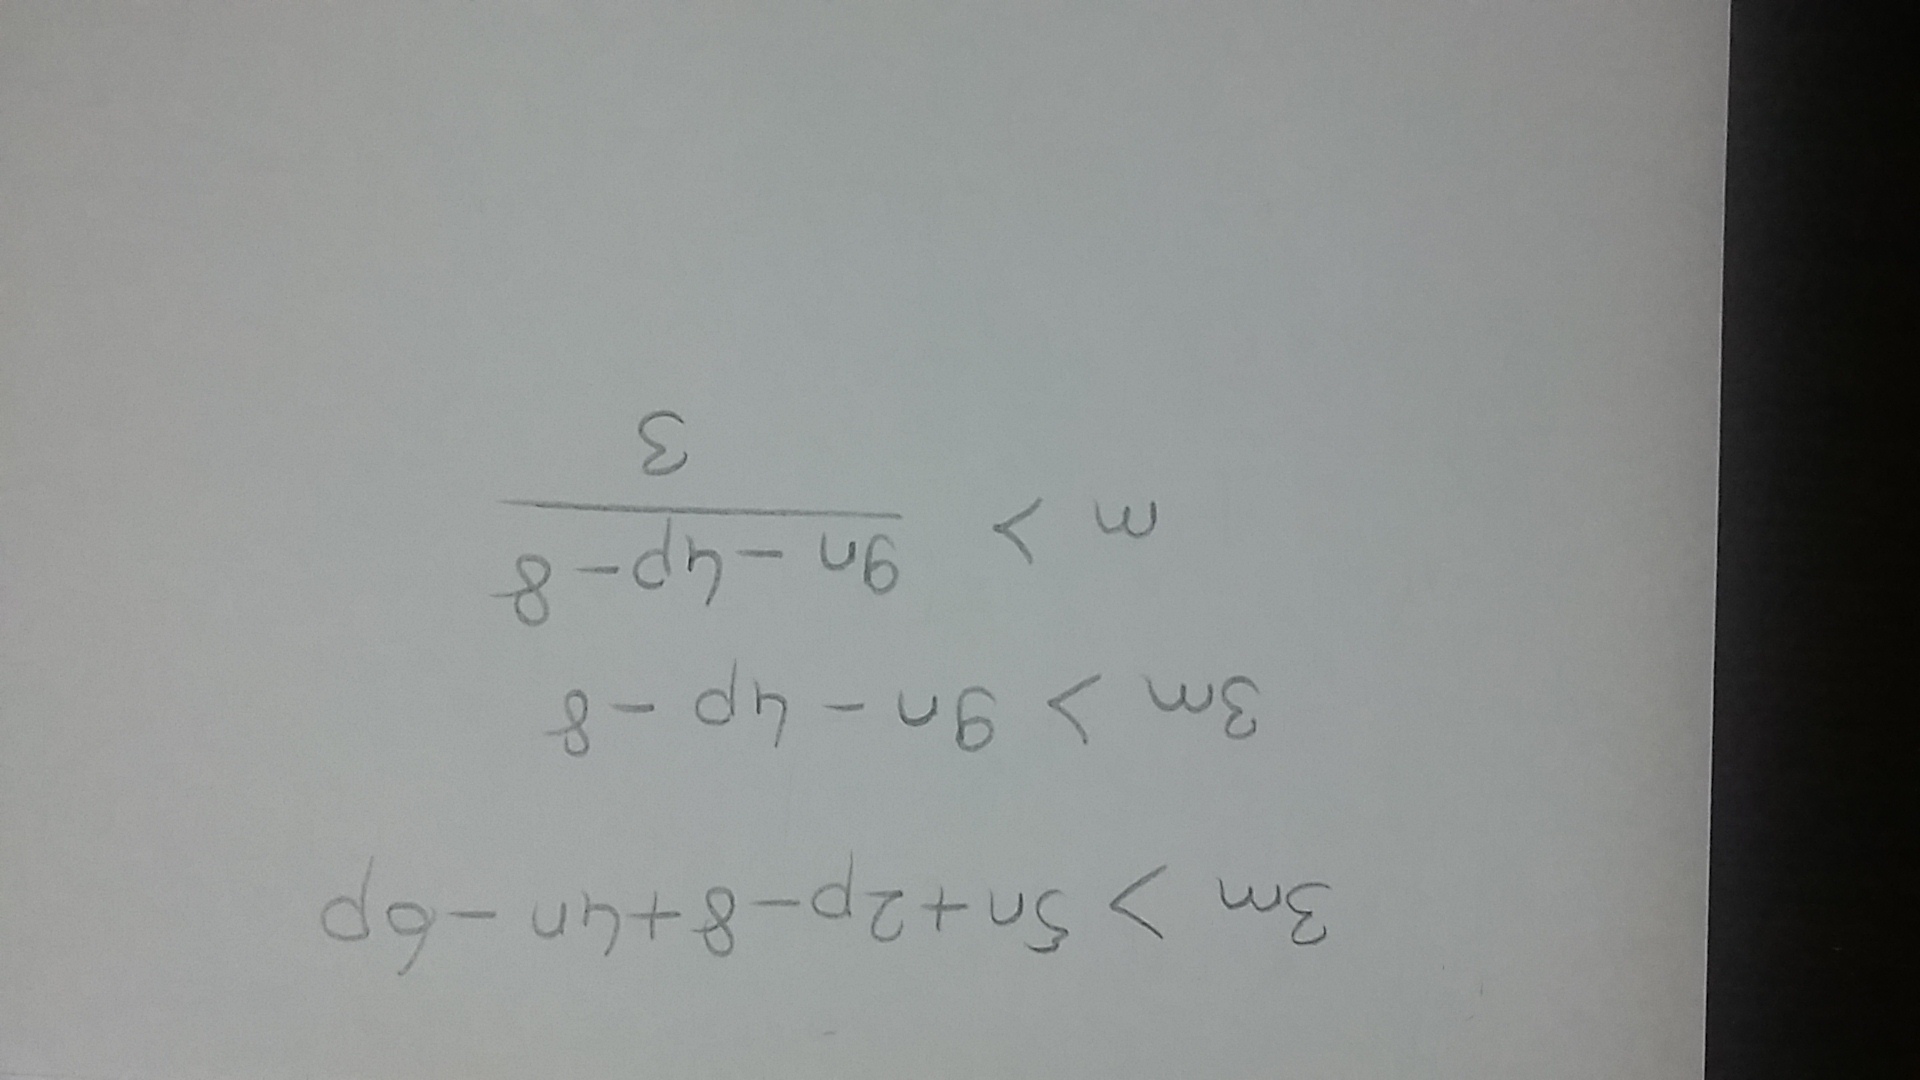 3m > 5n+2p-8+4n-6p
3m > 9n-4p-8
m > \frac{9n-4p-8}{3}